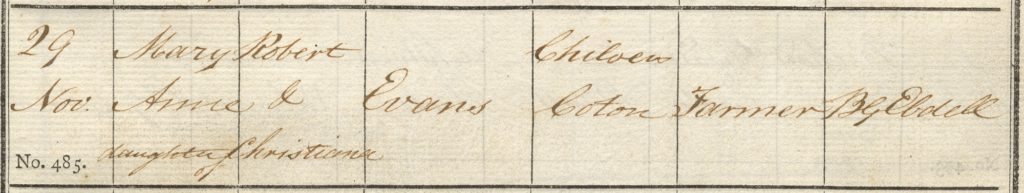 29 Mary Robert Chilvers
Nov. Anne & Evans Coton Farmer B G Ebdell
No. 485. daughter of Christiana